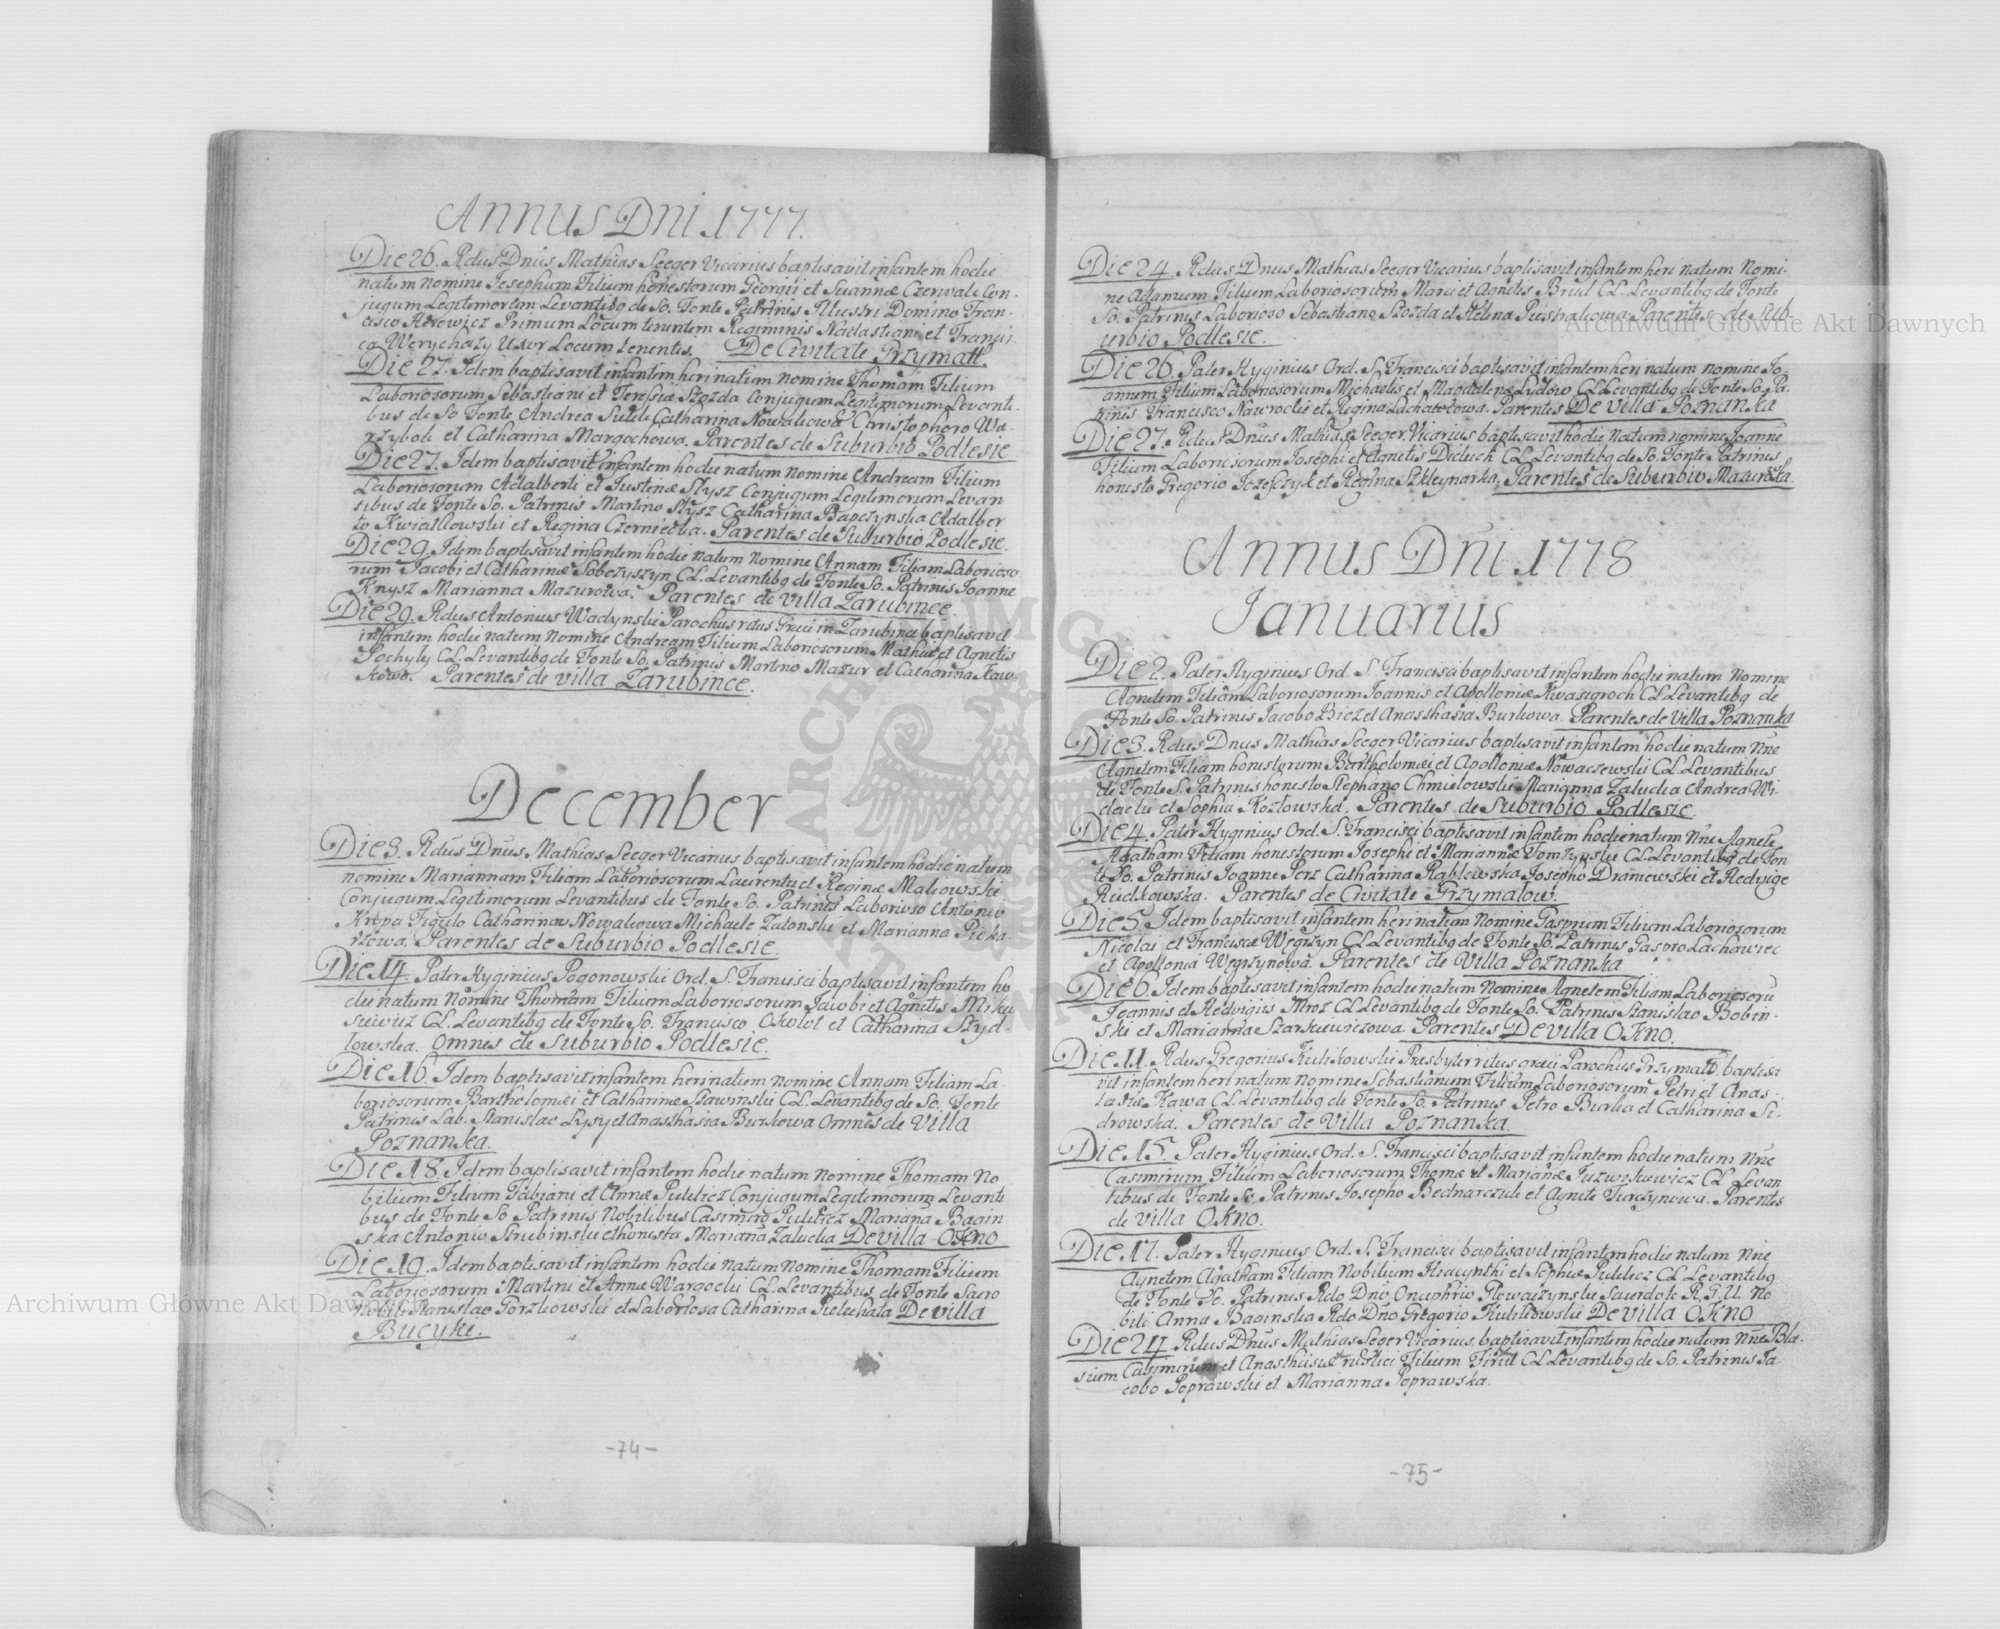 Annus Dni 1777.
Die 26. Rdus Dnus Mathias Seeger Vicarius baptisavit infantem hodie
natum nomine Josephum Filium honestorum Georgii et Susannæ Czerwak Con-
jugum Legitimorum Levantibq de So. Fonte Patrinis Illustri Domino Fran-
cisco Primum Locum tenentem Regiminis Nadastiani et Francis-
ca Uxor Locum tenentis. De Civitate Grzymall.
Die 27. Idem baptisavit infantem heri natum nomine Thomam Filium
Laboriosorum Sebastiani et Teresiæ Szozda Conjugum Legitimorum Levanti-
bus de So Fonte Andrea Catharina Nowakowa Christophoro Wa-
et Catharina Margochowa. Parentes de Suburbio Podlesie
Die 27. Idem baptisavit infantem hodie natum nomine Andream Filium
Laboriosorum Adalberti et Justinæ Slysz Conjugum Legitimorum Levan
tibus de Fonte So. Patrinis Martino Slysz Catharina Bapczynska Adalber
to Kwiatkowski et Regina Czerniecka. Parentes de Suburbio Podlesie.
Die 29. Idem baptisavit infantem hodie natum nomine Annam Filiam Laborioso
rum Jacobi et Catharinæ Sobczyszyn CL. Levantibq de Fonte So. Patrinis Joanne
Knysz Marianna Mazurowa. Parentes de villa Zarubince.
Die 29. Rdus Antonius Wadynski Parochus ritus Græci in Zarubince baptisavit
infantem hodie natum nomine Andream Filium Laboriosorum Mathiæ et Agnetis
Pochyły CL. Levantibq de Fonte So. Patrinis Martino Mazur et Catharina Kaw-
kowa. Parentes de villa Zarubince.
December
Die 3. Rdus Dnus Mathias Seeger Vicarius baptisavit infantem hodie natum
nomine Mariannam Filiam Laboriosorum Laurentii et Reginæ Makowski
Conjugum Legitimorum Levantibus de Fonte So. Patrinis Laborioso Antonio
Krepa Figulo Catharina Nowakowa Michaele Zatonski et Marianna Pieka-
rzowa. Parentes de Suburbio Podlesie.
Die 14. Pater Hyginius Pogonowski Ord. S. Francisci baptisavit infantem ho
die natum nomine Thomam Filium Laboriosorum Jacobi et Agnetis Miku
CL. Levantibq de Fonte So. Francisco Okulot et Catharina Szyd-
lowska. Omnes de Suburbio Podlesie.
Die 16. Idem baptisavit infantem heri natum nomine Annam Filiam La-
boriosorum Bartholomæi et Catharinæ Sławinski CL. Levantibq de So. Fonte
Patrinis Lab. Stanislao Lysy et Anasthasia Burkowa Omnes de Villa
Poznanka.
Die 18. Idem baptisavit infantem hodie natum nomine Thomam No
bilium Filium Fabiani et Annæ Pulikicz Conjugum Legitimorum Levanti
bus de Fonte So Patrinis Nobilibus Casimiro Pulikicz Mariana Bagin
ska Antonio Strubinski et honesta Mariana Zaluckia De villa Okno
Die 19. Idem baptisavit infantem hodie natum nomine Thomam Filium
Laboriosorum Martini et Annæ Wargocki CL. Levantibus de Fonte Sacro
Nobili Stanislao Gorzkowski et Laboriosa Catharina De villa
Bucyki.
-74-
Die 24. Rdus Dnus Mathias Seeger Vicarius baptisavit infantem heri natum Nomi-
ne Adamum Filium Laboriosorum Marci et Agnetis Brud CL. Levantibq de Fonte
So. Patrinis Laborioso Sebastiano Szozda et Helena Parentes de Sub-
urbio Podlesie.
Die 26. Pater Hyginius Ord. S. Francisci baptisavit infantem heri natum nomine Jo-
annem Filium Laboriosorum Michaelis et Magdalenæ Lydow CL Levantibq de Fonte So. Pa-
trinis Francisco Nawrocki et Regina Lachatotowa. Parentes De Villa Poznanka
Die 27. Rdus Dnus Mathias Seeger Vicarius baptisavit hodie Natum nomine Joanne
Filium Laboriosorum Josephi et Agnetis Diduch CL Levantibq de So. Fonte Patrinis
honesto Gregorio Jozefczyk et Regina Szkleynarka. Parentes de Suburbio Mazurowka.
Annus Dni 1778
Januarius
Die 2. Pater Hyginius Ord. S. Francisci baptisavit infantem hodie natum nomine
Agnetem Filiam Laboriosorum Joannis et Apolloniæ Kwasigroch CL Levantibq de
Fonte So. Patrinis Jacobo Biez et Anasthasia Burkowa. Parentes de Villa Poznanka
Die 3. Rdus Dnus Mathias Seeger Vicarius baptisavit infantem hodie natum Nne
Agnetem Filiam honestorum Bartholomæi et Apolloniæ Nowaczewski CL. Levantibus
de Fonte S. Patrinis honesto Stephano Chmielowski Marianna Zaluckia Andrea Wi-
dacki et Sophia Kozlowska. Parentes de Suburbio Podlesie.
Die 4. Pater Hyginius Ord. S. Francisci baptisavit infantem hodie natum Nne Agnete
Agatham Filiam honestorum Josephi et Mariannæ Tomzynski CL. Levantibq de Fon
te So. Patrinis Joanne Perz Catharina Rablewska Josepho Draniewski et Hedvige
Rudkowska. Parentes de Civitate Grzymalow.
Die 5. Idem baptisavit infantem heri natum Nomine Gasprum Filium Laboriosorum
Nicolai et Franciscæ Węgrzyn CL Levantibq de Fonte So. Patrinis Gaspro Lachowiec
et Apollonia Węgrzynowa. Parentes de Villa Poznanka
Die 6. Idem baptisavit infantem hodie natum Nomine Agnetem Filiam Laboriosoru
Joannis et Hedvigis Mroz CL Levantibq de Fonte So. Patrinis Stanislao Bobin-
ski et Marianna Szarkiewiczowa. Parentes De villa Okno.
Die 11. Rdus Gregorius Kulikowski Præsbyter ritus græci Parochus Grzymal. baptisa
vit infantem heri natum nomine Sebastianum Filium Laboriosorum Petri et Anas-
tasiæ Kawa CL. Levantibq de Fonte So. Patrinis Petro Burka et Catharina Si-
drowska. Parentes de Villa Poznanka.
Die 15. Pater Hyginius Ord. S. Francisci baptisavit infantem hodie natum Nne
Casimirum Filium Laboriosorum Thomæ et Marianæ CL Levan
tibus de Fonte So. Patrinis Josepho Bednarczuk et Agnete Turczynowa. Parentes
de villa Okno.
Die 17. Pater Hyginius Ord. S. Francisci baptisavit infantem hodie natum Nne
Agnetem Agatham Filiam Nobilium Hiacynthi et Sophiæ Pulikicz CL Levantibq
de Fonte So. Patrinis Rdo Dno Onuphrio Sacerdote R. G. U. No
bili Anna Baginska Rdo Dno Gregorio Kulikowski De villa Okno
Die 24. Rdus Dnus Mathias Seger Vicarius baptisavit infantem hodie natum Nne Bla-
sium Casimirum et Anasthasiæ rustici Filium CL Levantibq de So. Patrinis Ja
cobo Poprawski et Marianna Poprawska.
-75-
Archiwum Główne Akt Dawnych
Archiwum Główne Akt Dawnych